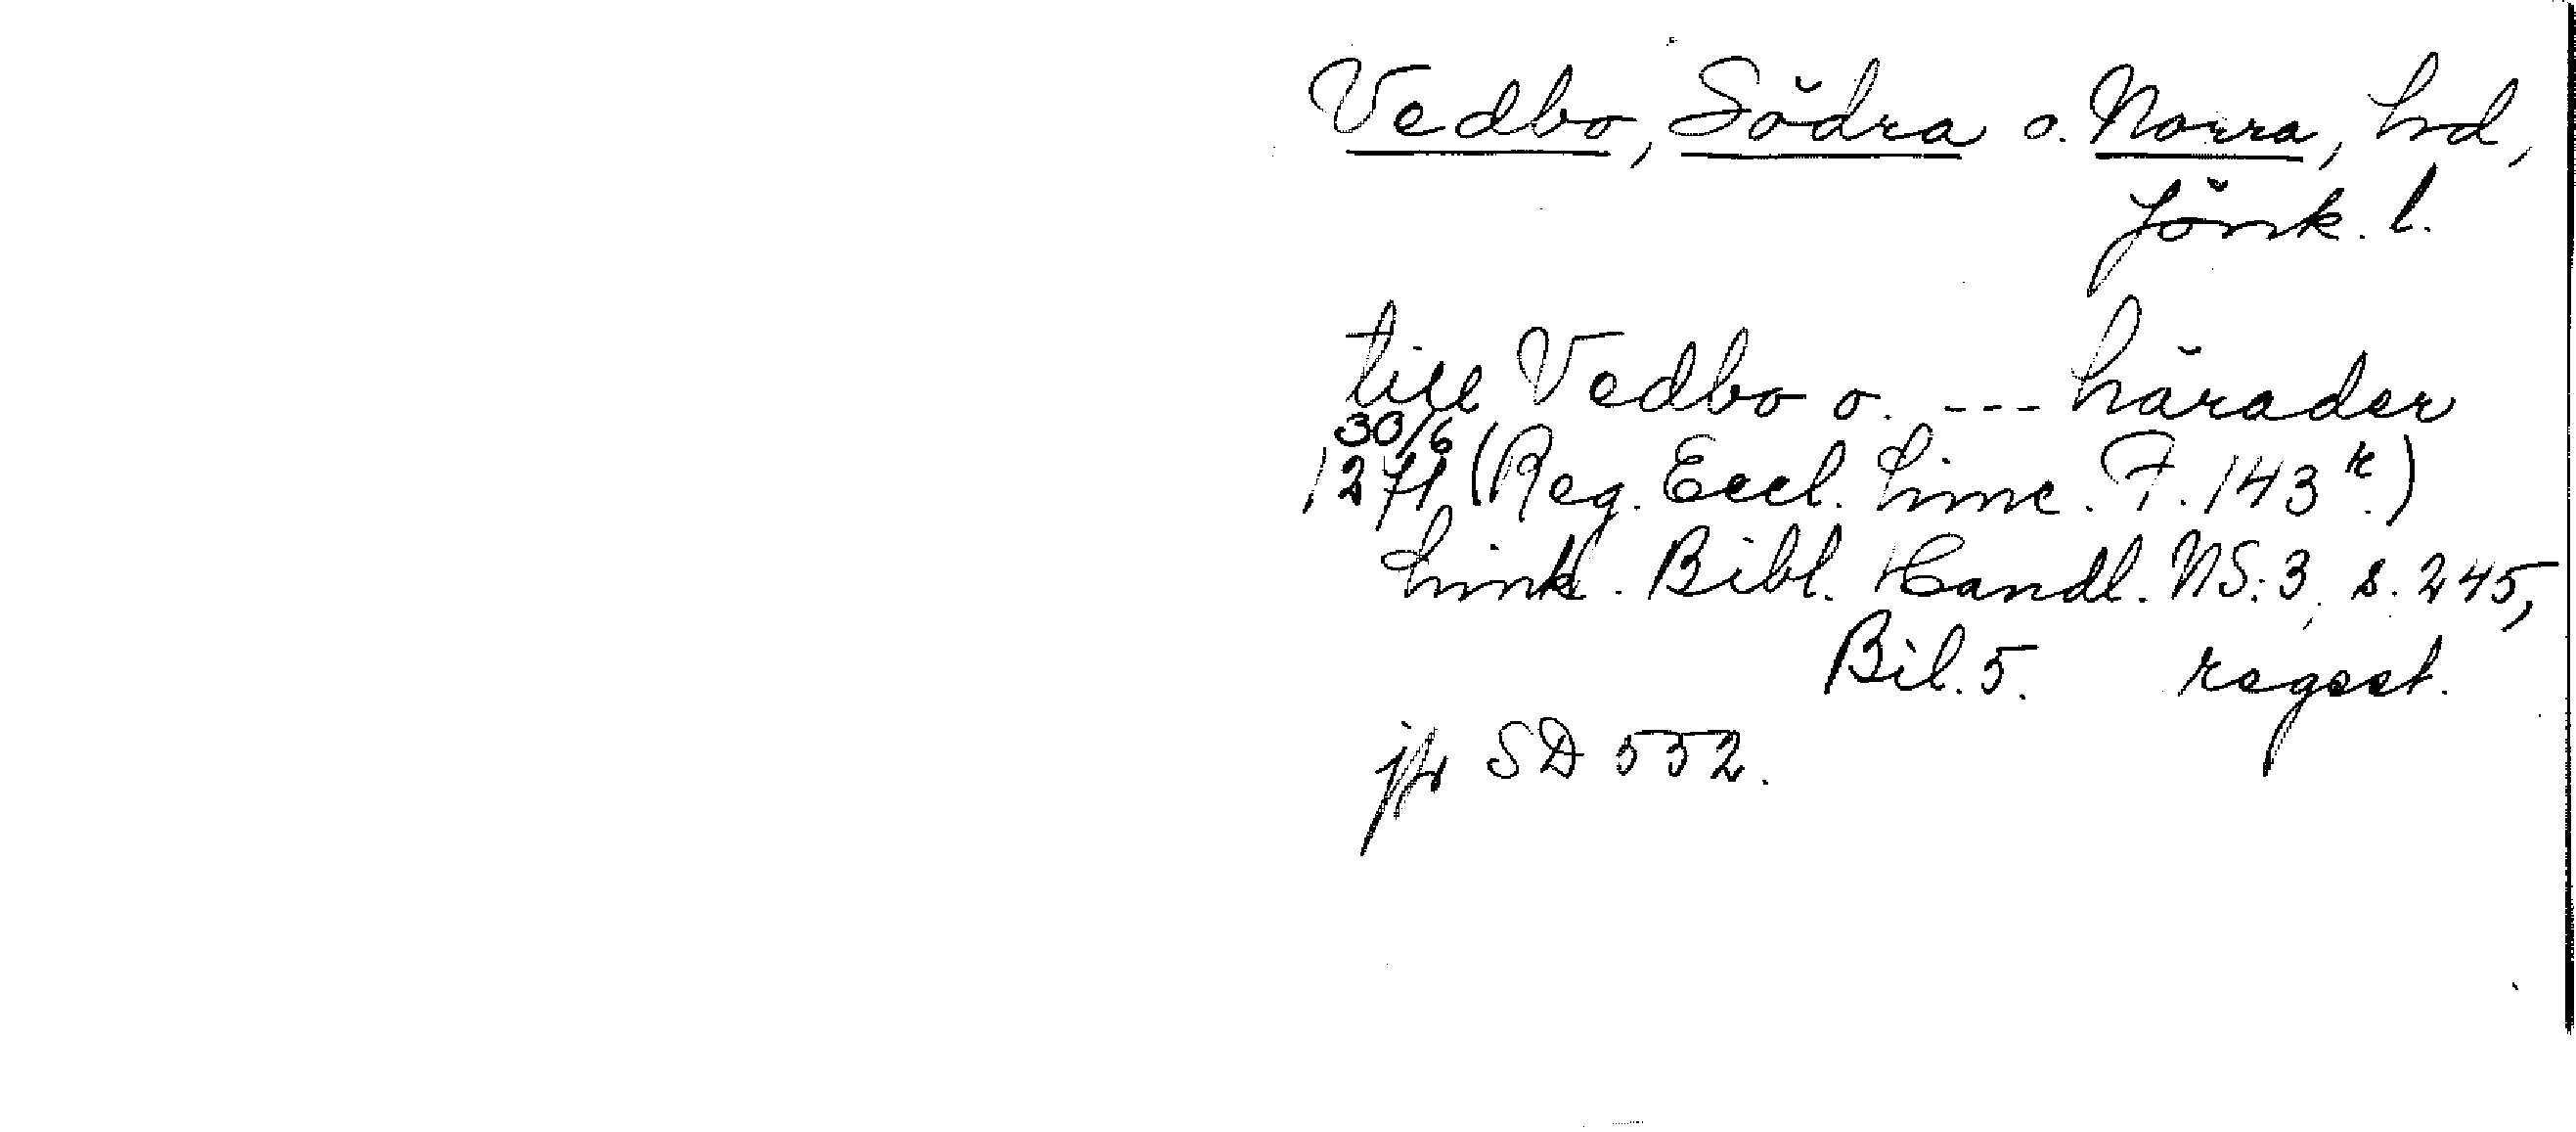 Vedbo, Södra o. Norra, hd,
Jönk. l.
till Vedbo o. --- härader
30/6
1271 (Reg. Eccl. Linc. F. 143 r.)
Link. Bibl. Handl. NS:3, s. 245,
Bil. 5. regest.
jfr SD 552.